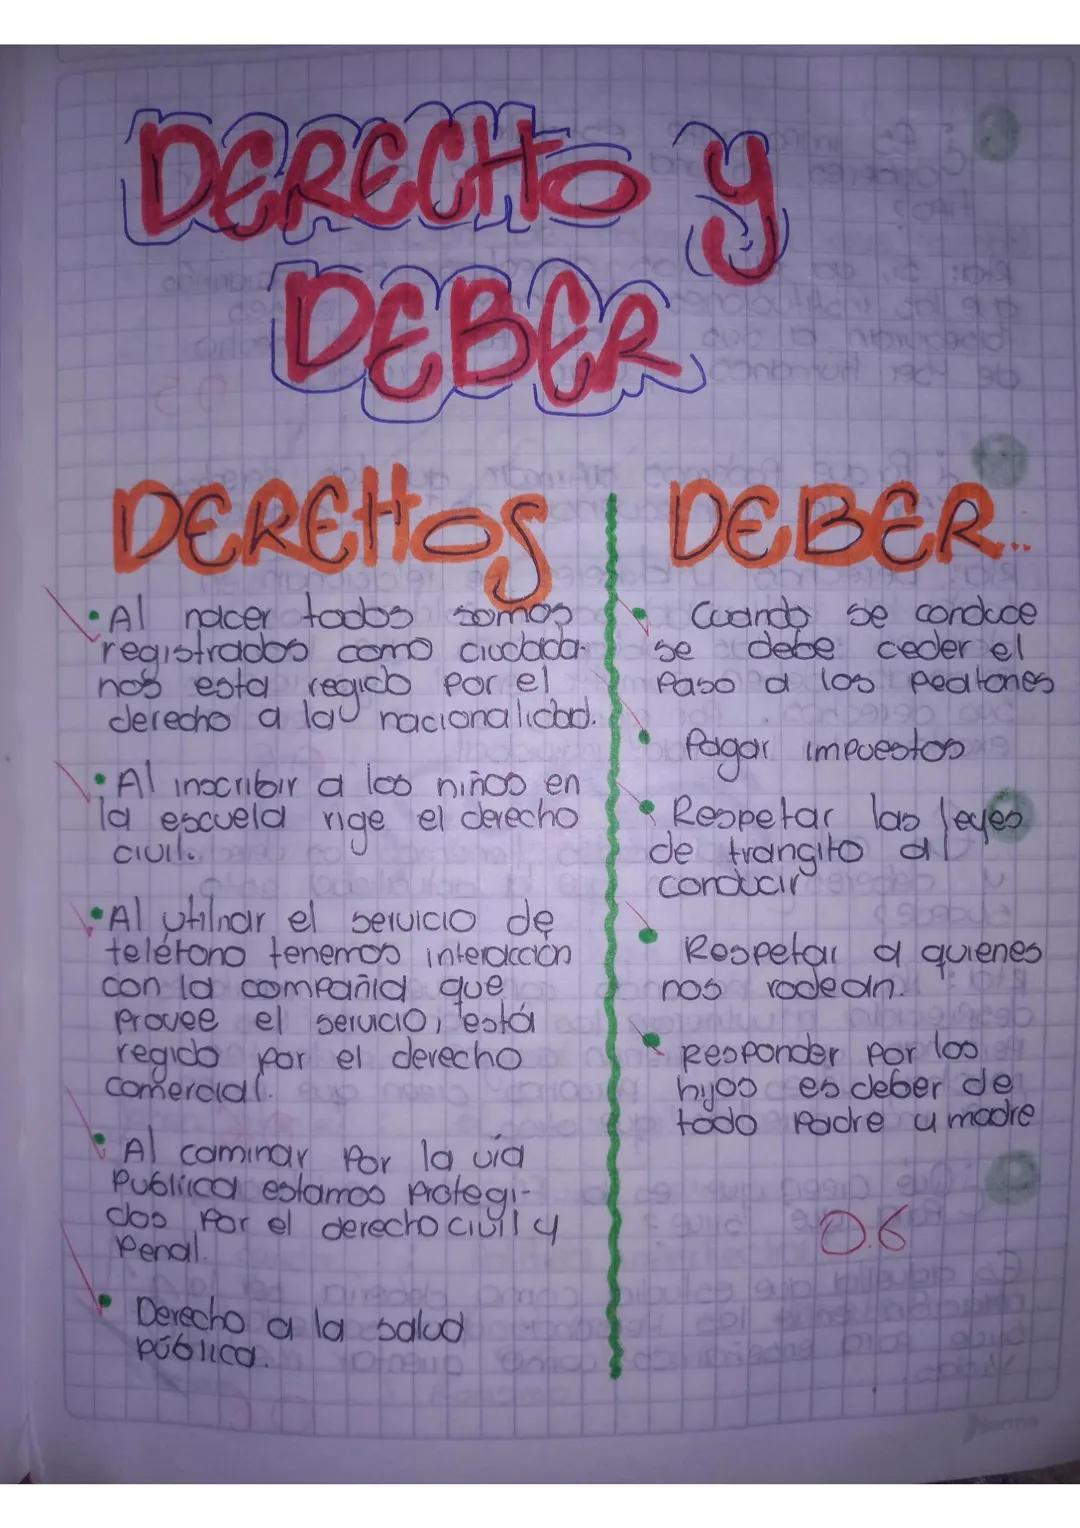 DERECHO Y
DEBER
DEREHOS
• Al nacer todos somos
registrados como ciudada-
nos esta regido por el
derecho a la nacionalidad.
• Al inscribir a los niños en
la escuela rige el derecho
civil.
• Al utilnar el servicio de
teléfono tenemos interacción
con la compañia que
provee el servicio, está
regido por el derecho
comercial.
• Al caminar por la via
Publica estamos protegi-
dos por el derecho civil y
Penal.
• Derecho a la salud
pública.
DEBER...
• Cuando se conduce
se debe ceder el
Paso a los peatones
• Pagar impuestos
• Respetar las leyes
de trangito al
conducir
• Respetar a quienes
nos rodean.
• Responder por los
hijos es deber de
todo Padre y madre
0.6
Norma